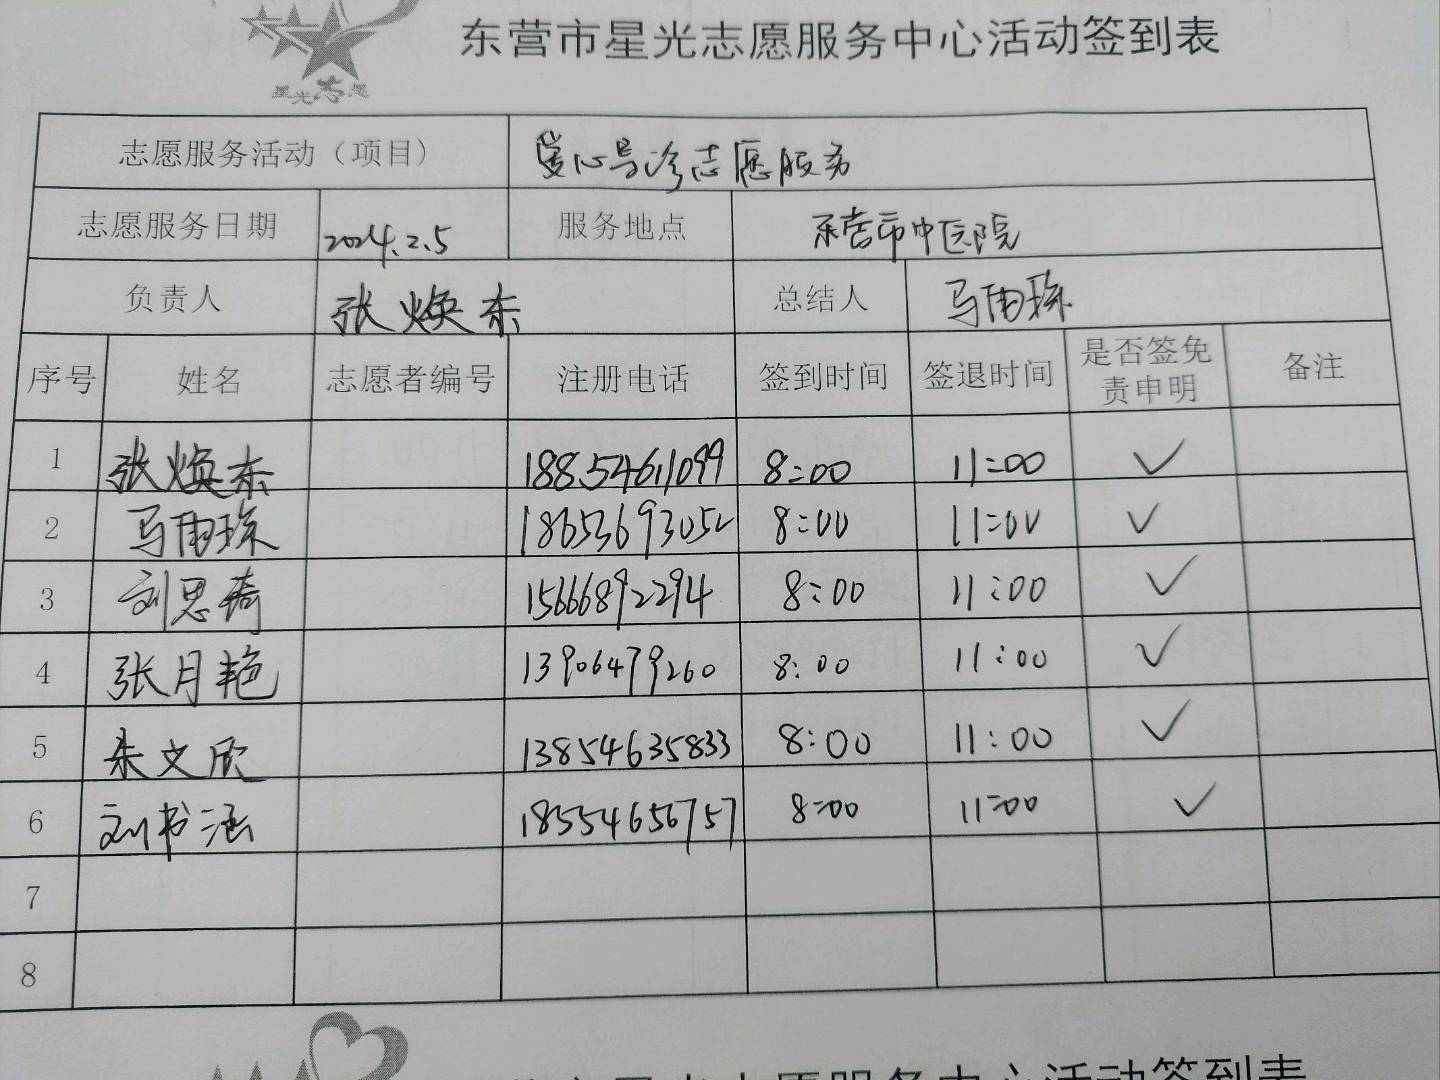 东营市星光志愿服务中心活动签到表
星光志愿
志愿服务活动（项目） 爱心导诊志愿服务
志愿服务日期 2024.2.5 服务地点 东营市中医院
负责人 张焕东 总结人 马雨琛
序号 姓名 志愿者编号 注册电话 签到时间 签退时间 是否签免责申明 备注
1 张焕东 18854611099 8:00 11:00 ✓
2 马雨琛 18653693052 8:00 11:00 ✓
3 刘思琦 15666892294 8:00 11:00 ✓
4 张月艳 13906479260 8:00 11:00 ✓
5 朱文欣 13854635833 8:00 11:00 ✓
6 刘书涵 18554656757 8:00 11:00 ✓
7
8
东营市星光志愿服务中心活动签到表